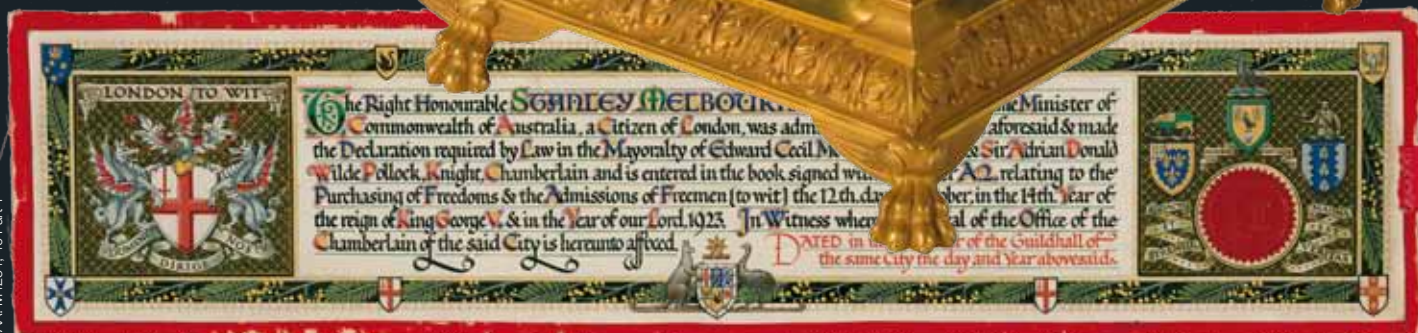 LONDON TO WIT
The Right Honourable STANLEY MELBOUR Minister of
Commonwealth of Australia, a Citizen of London, was adm aforesaid & made
the Declaration required by Law in the Mayoralty of Edward Cecil M & Sir Adrian Donald
Wilde Pollock, Knight, Chamberlain and is entered in the book signed A2. relating to the
Purchasing of Freedoms & the Admissions of Freemen [to wit] the 12th. day ber, in the 14th. Year of
the reign of King George V. & in the Year of our Lord. 1923. In Witness wher al of the Office of the
Chamberlain of the said City is hereunto affixed.
DATED in r of the Guildhall of
the same City the day and Year abovesaid.
DOMINE DIRIGE NOS